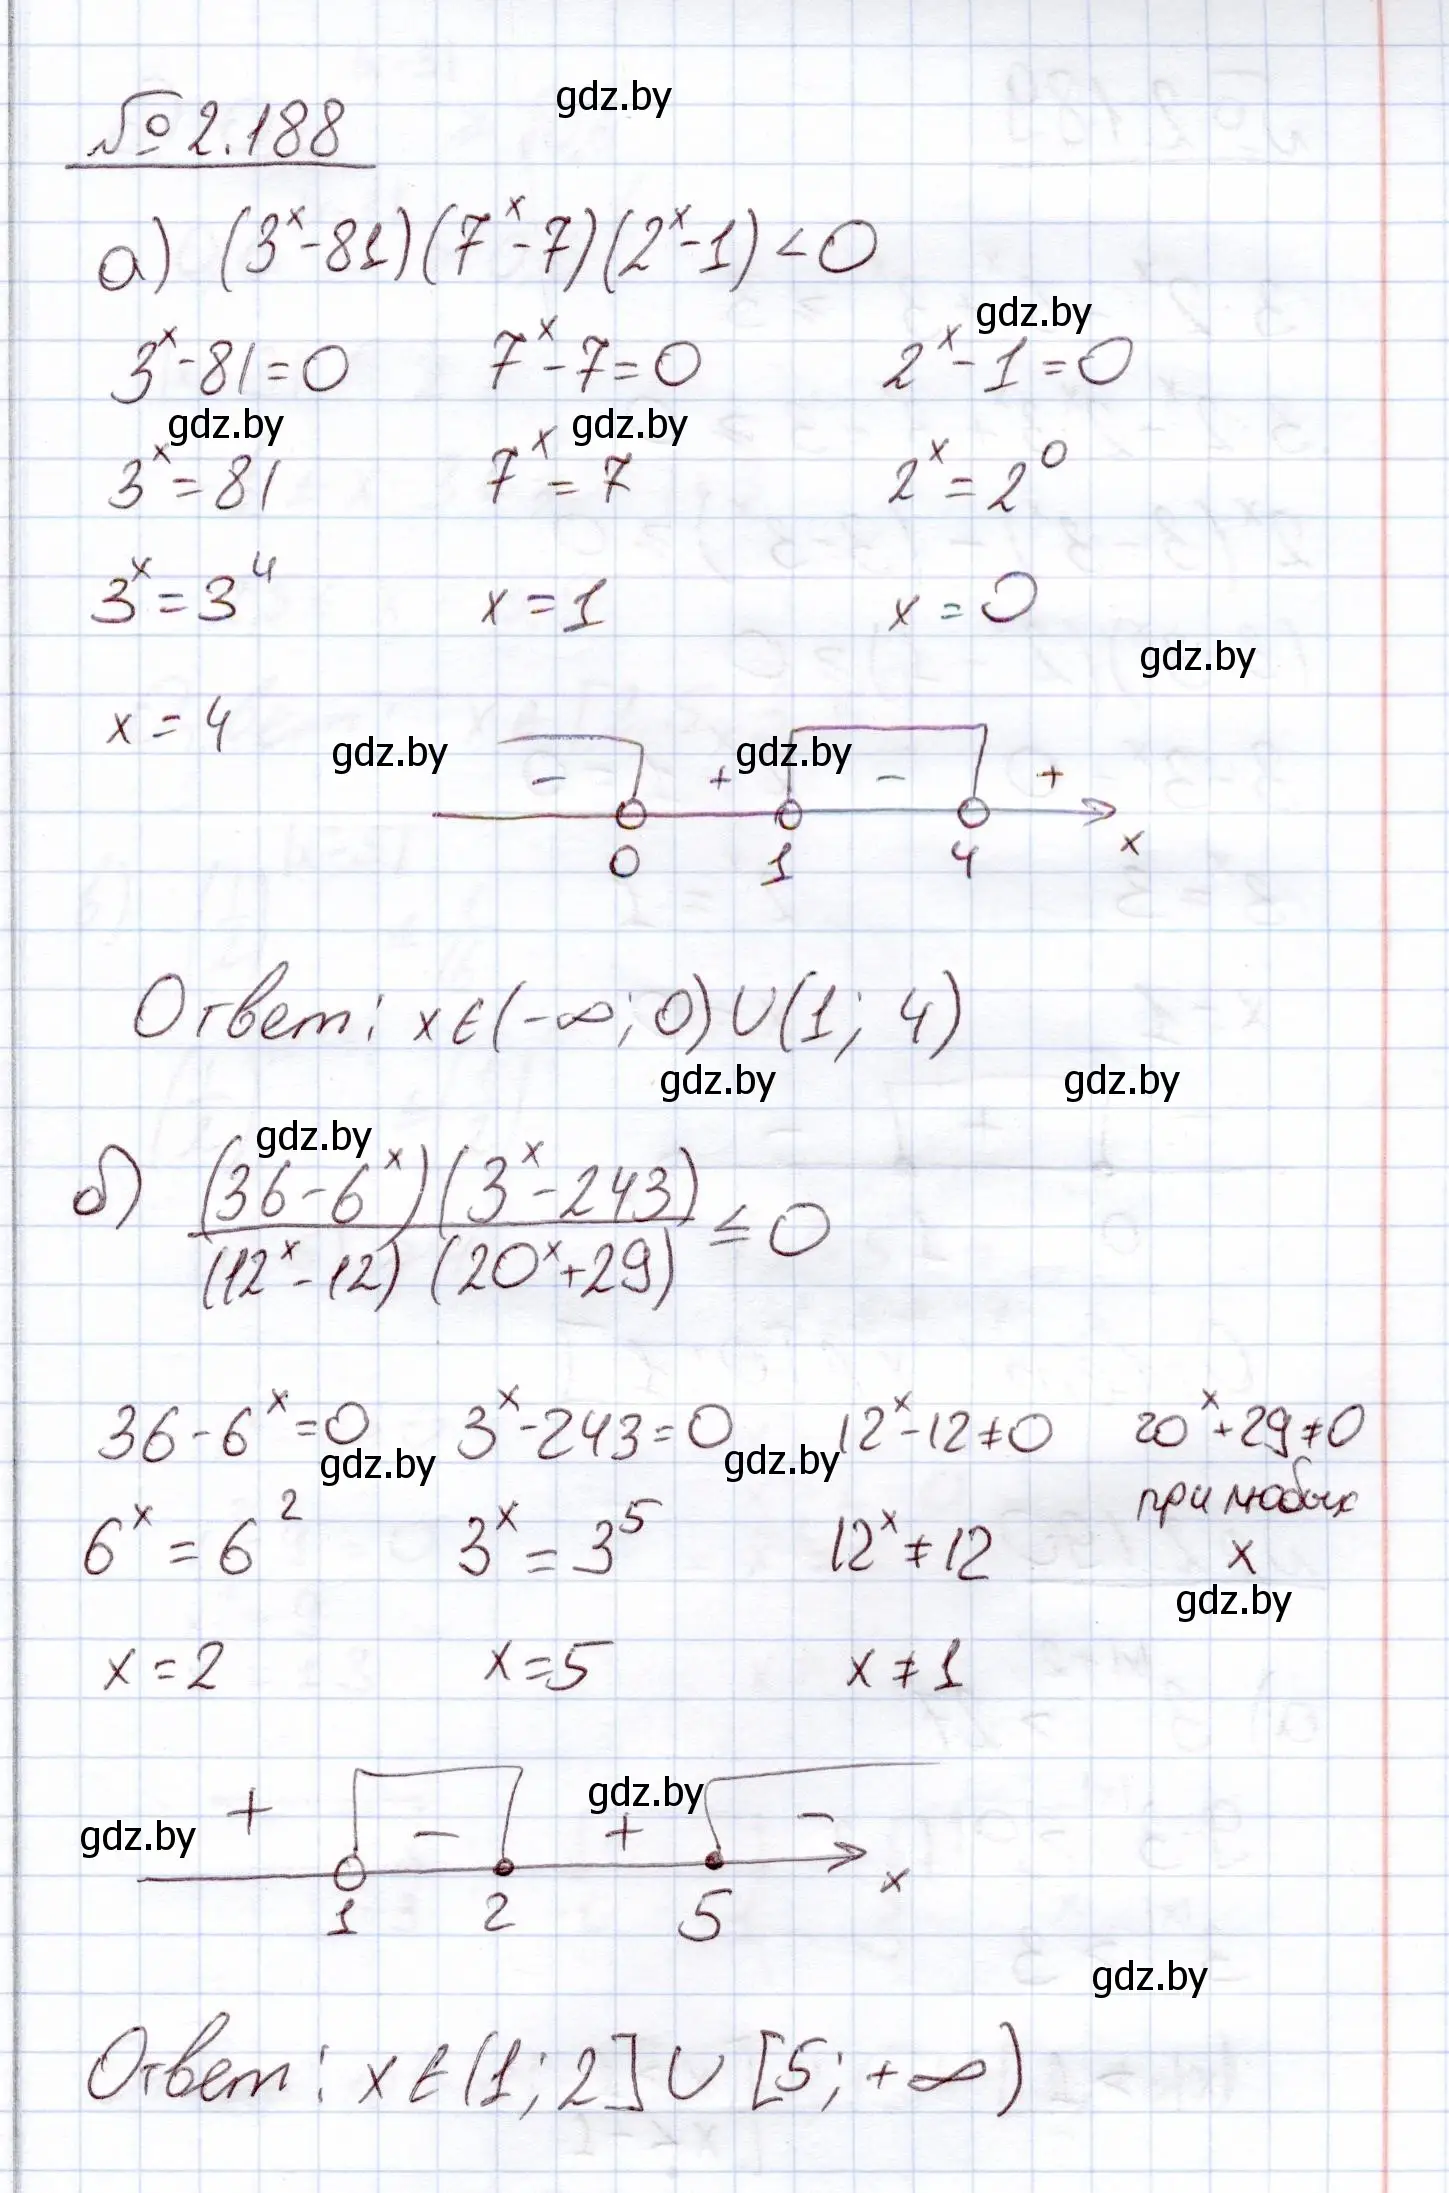 gdz.by
№ 2.188
а) (3ˣ-81)(7ˣ-7)(2ˣ-1)<0
gdz.by
3ˣ-81=0 7ˣ-7=0 2ˣ-1=0
gdz.by gdz.by
3ˣ=81 7ˣ=7 2ˣ=2⁰
3ˣ=3⁴ x=1 x=0
gdz.by
x=4
gdz.by gdz.by
- + - +
0 1 4 x
Ответ: x∈(-∞;0)∪(1;4)
gdz.by gdz.by
gdz.by
б) (36-6ˣ)(3ˣ-243)
≤0
(12ˣ-12)(20ˣ+29)
36-6ˣ=0 3ˣ-243=0 12ˣ-12≠0 20ˣ+29≠0
gdz.by gdz.by
при любых
6ˣ=6² 3ˣ=3⁵ 12ˣ≠12 x
gdz.by
x=2 x=5 x≠1
gdz.by
+ - + -
gdz.by
1 2 5 x
gdz.by
Ответ: x∈(1;2]∪[5;+∞)